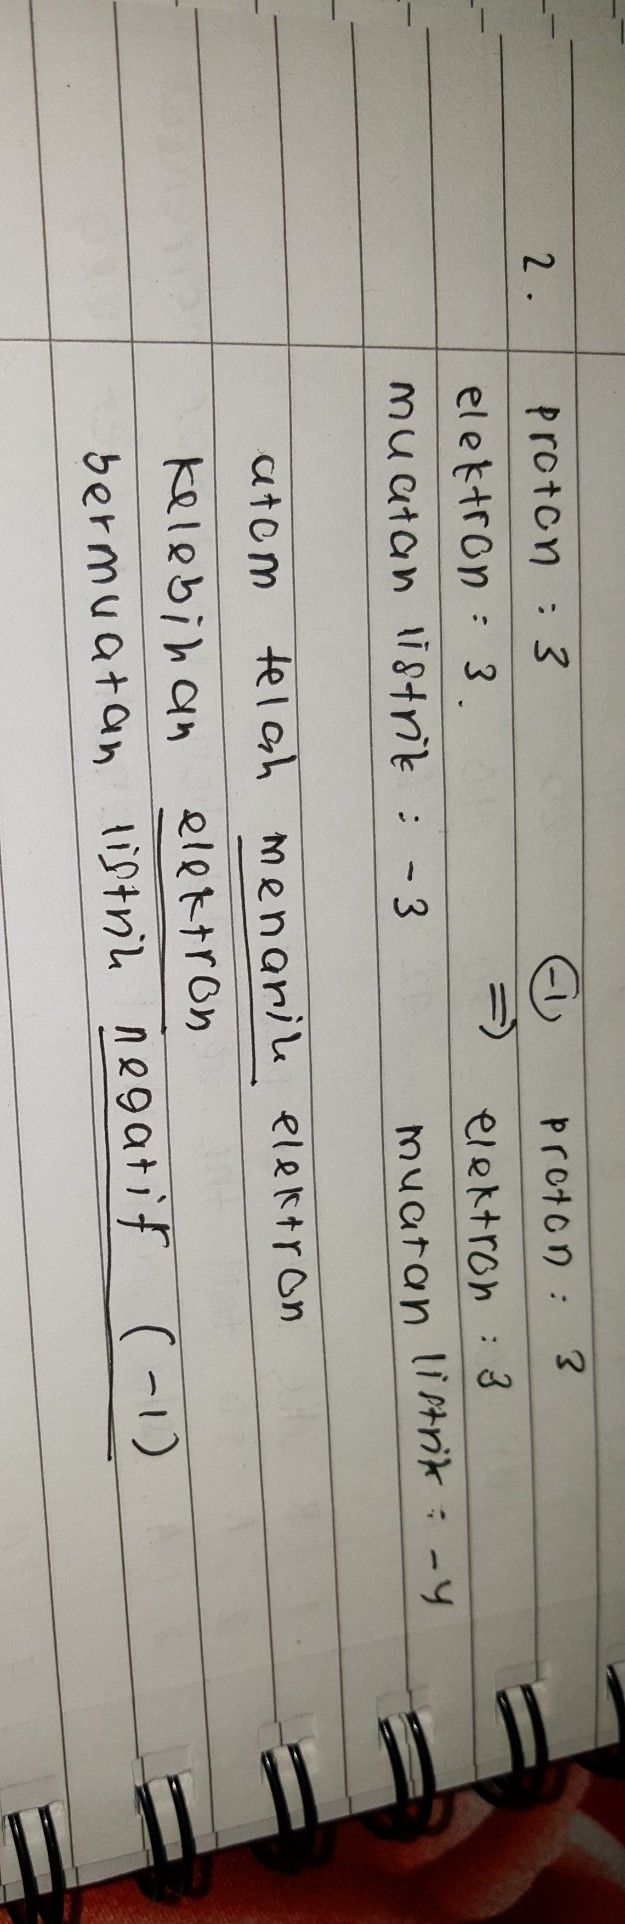 2. proton : 3 (-1) proton : 3
elektron : 3. => elektron : 3
muatan listrik : -3 muatan listrik : -4
atom telah menarik elektron
kelebihan elektron
bermuatan listrik negatif (-1)